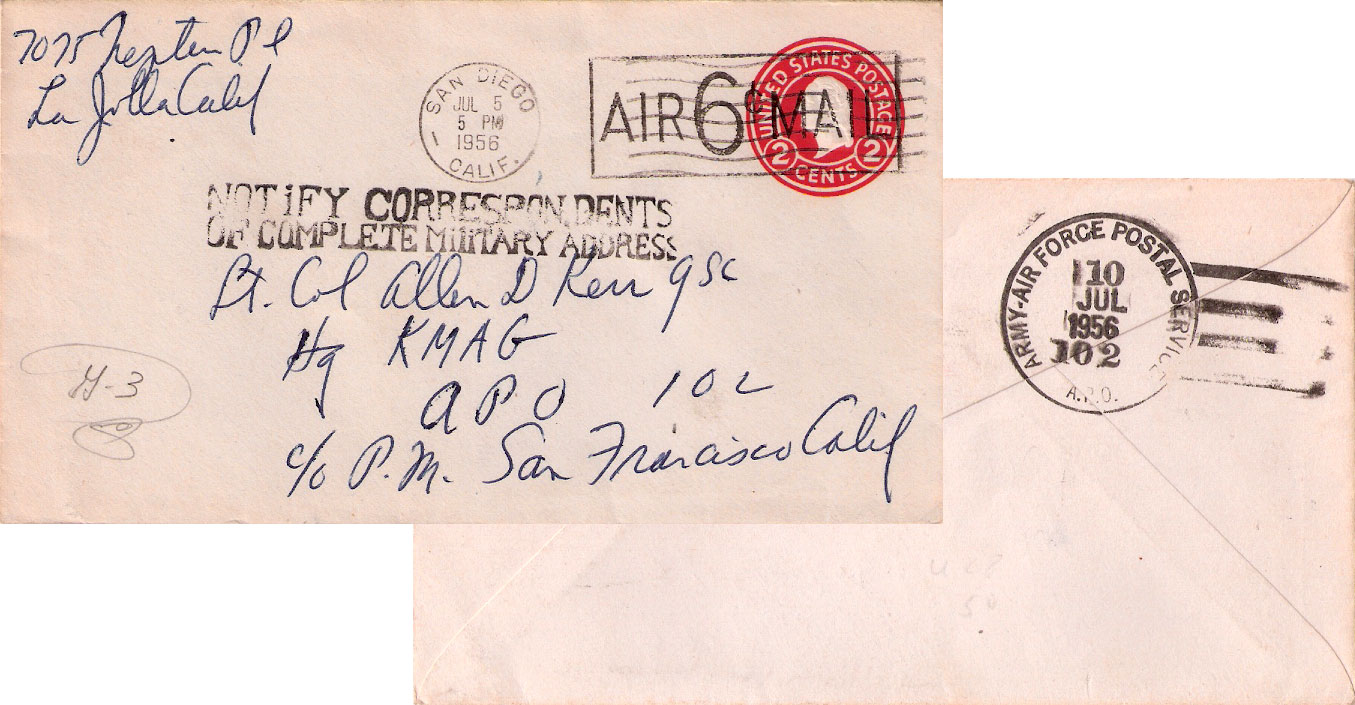 7075 Neptune Pl
La Jolla Calif
SAN DIEGO
JUL 5
5 PM
1956
CALIF.
AIR 6c MAIL
UNITED STATES POSTAGE
2 CENTS 2
NOTIFY CORRESPONDENTS
OF COMPLETE MILITARY ADDRESS
Lt. Col Allen D Kerr GSC
Hq KMAG
APO 102
c/o P.M. San Francisco Calif
G-3
ARMY-AIR FORCE POSTAL SERVICE
10
JUL
1956
102
A.P.O.